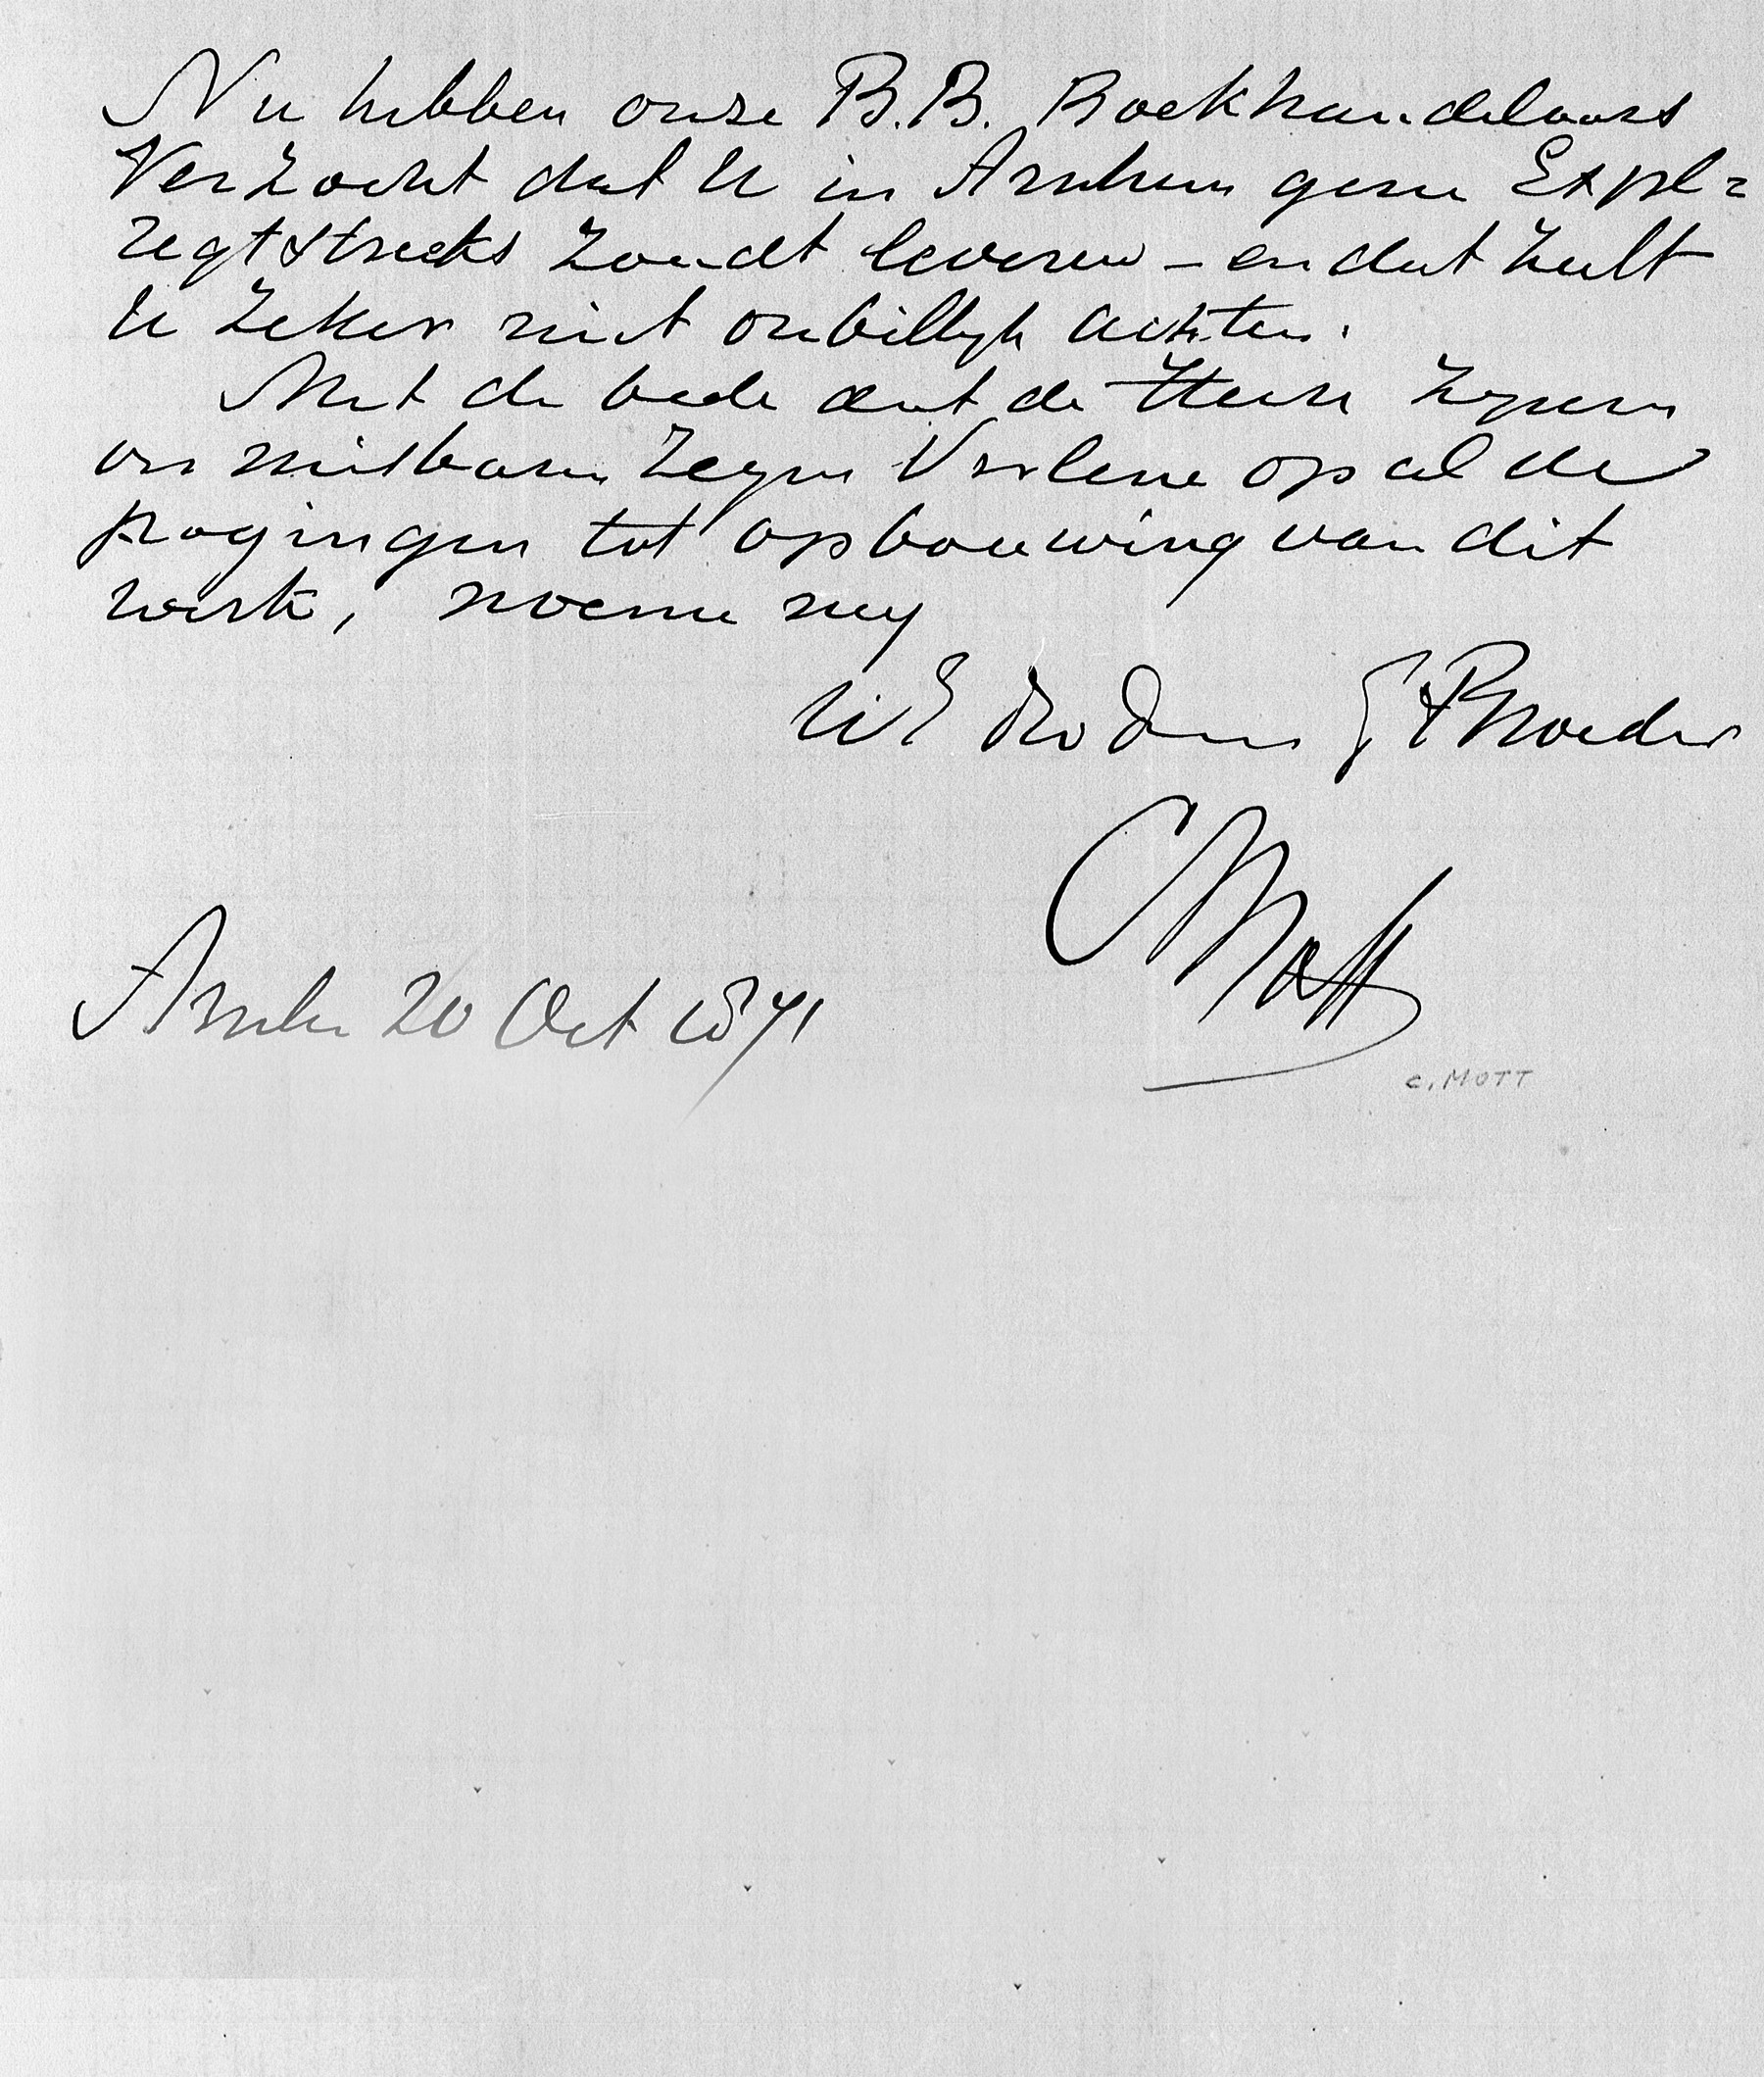 Nu hebben onze B.B. Boekhandelaars
Verzocht dat U in Arnhem geen Expl=
regtstreeks zoudt leveren – en dat zult
U zeker niet onbillijk achten.
Met de bede dat de Heere zijnen
onmisbaren zegen Verleene op al de
pogingen tot opbouwing van dit
werk, noeme mij
UE Dw Dien & Broeder
C Mott
Arnhem 20 Oct 1871
C. MOTT